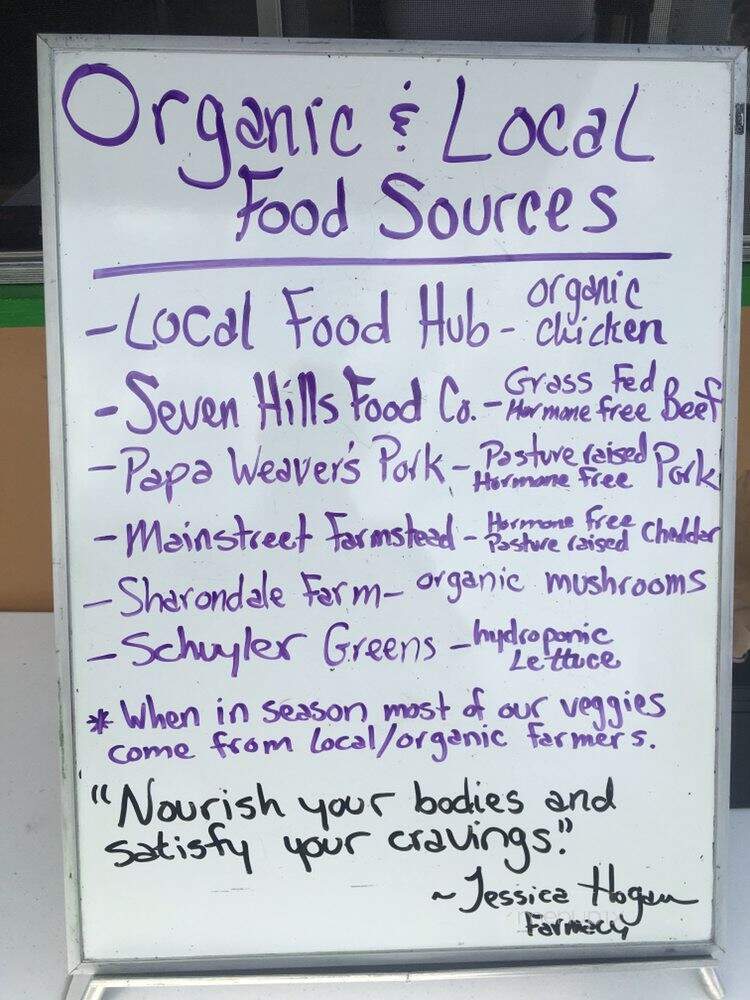 Organic & Local
Food Sources
- Local Food Hub - organic chicken
- Seven Hills Food Co. - Grass Fed Hormone free Beef
- Papa Weaver's Pork - Pasture raised Hormone Free Pork
- Mainstreet Farmstead - Hormone free Pasture raised Cheddar
- Sharondale Farm - organic mushrooms
- Schuyler Greens - hydroponic Lettuce
* When in season most of our veggies
come from local/organic farmers.
"Nourish your bodies and
satisfy your cravings."
~ Jessica Hogan
Farmacy